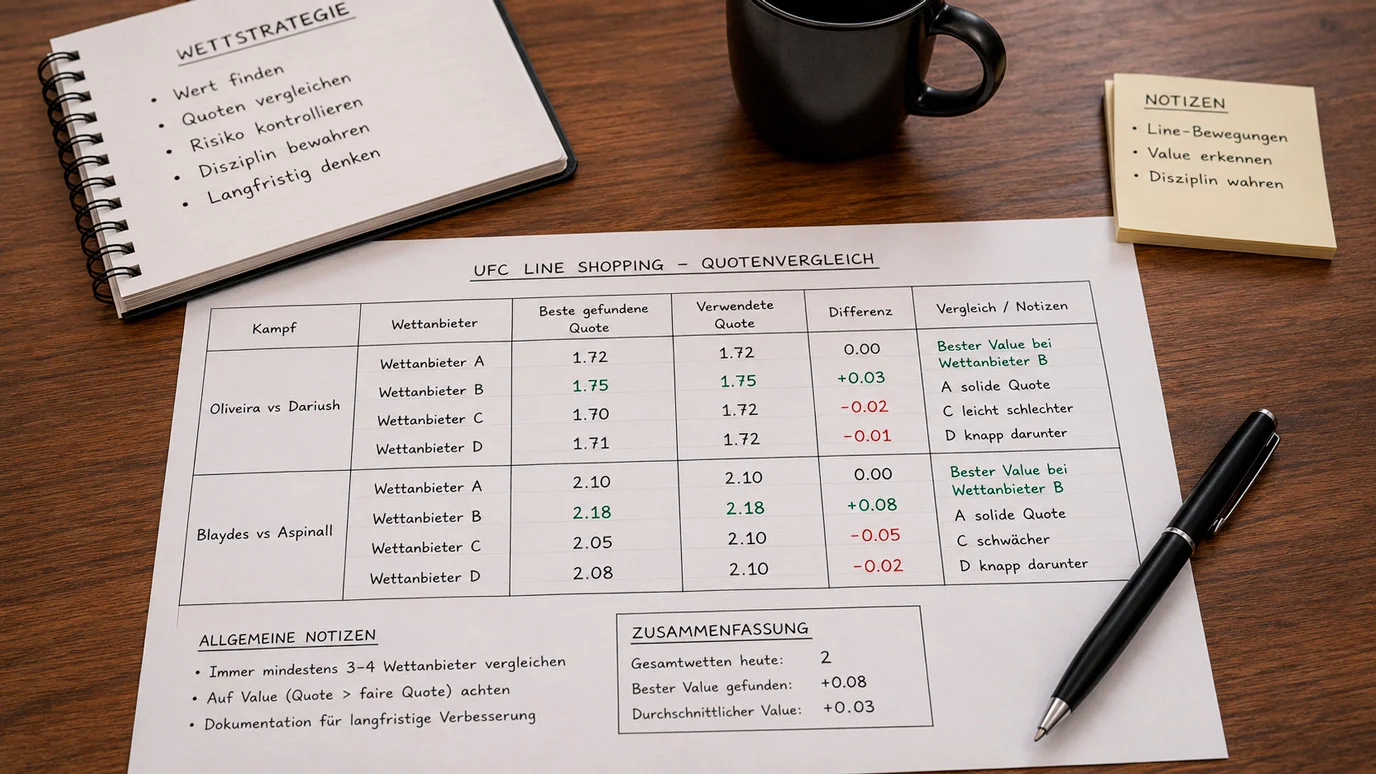 WETTSTRATEGIE
• Wert finden
• Quoten vergleichen
• Risiko kontrollieren
• Disziplin bewahren
• Langfristig denken
NOTIZEN
• Line-Bewegungen
• Value erkennen
• Disziplin wahren
UFC LINE SHOPPING – QUOTENVERGLEICH
Kampf Wettanbieter Beste gefundene Quote Verwendete Quote Differenz Vergleich / Notizen
Oliveira vs Dariush
Wettanbieter A 1.72 1.72 0.00 Bester Value bei Wettanbieter B
Wettanbieter B 1.75 1.75 +0.03 A solide Quote
Wettanbieter C 1.70 1.72 −0.02 C leicht schlechter
Wettanbieter D 1.71 1.72 −0.01 D knapp darunter
Blaydes vs Aspinall
Wettanbieter A 2.10 2.10 0.00 Bester Value bei Wettanbieter B
Wettanbieter B 2.18 2.18 +0.08 A solide Quote
Wettanbieter C 2.05 2.10 −0.05 C schwächer
Wettanbieter D 2.08 2.10 −0.02 D knapp darunter
ALLGEMEINE NOTIZEN
• Immer mindestens 3–4 Wettanbieter vergleichen
• Auf Value (Quote > faire Quote) achten
• Dokumentation für langfristige Verbesserung
ZUSAMMENFASSUNG
Gesamtwetten heute: 2
Bester Value gefunden: +0.08
Durchschnittlicher Value: +0.03